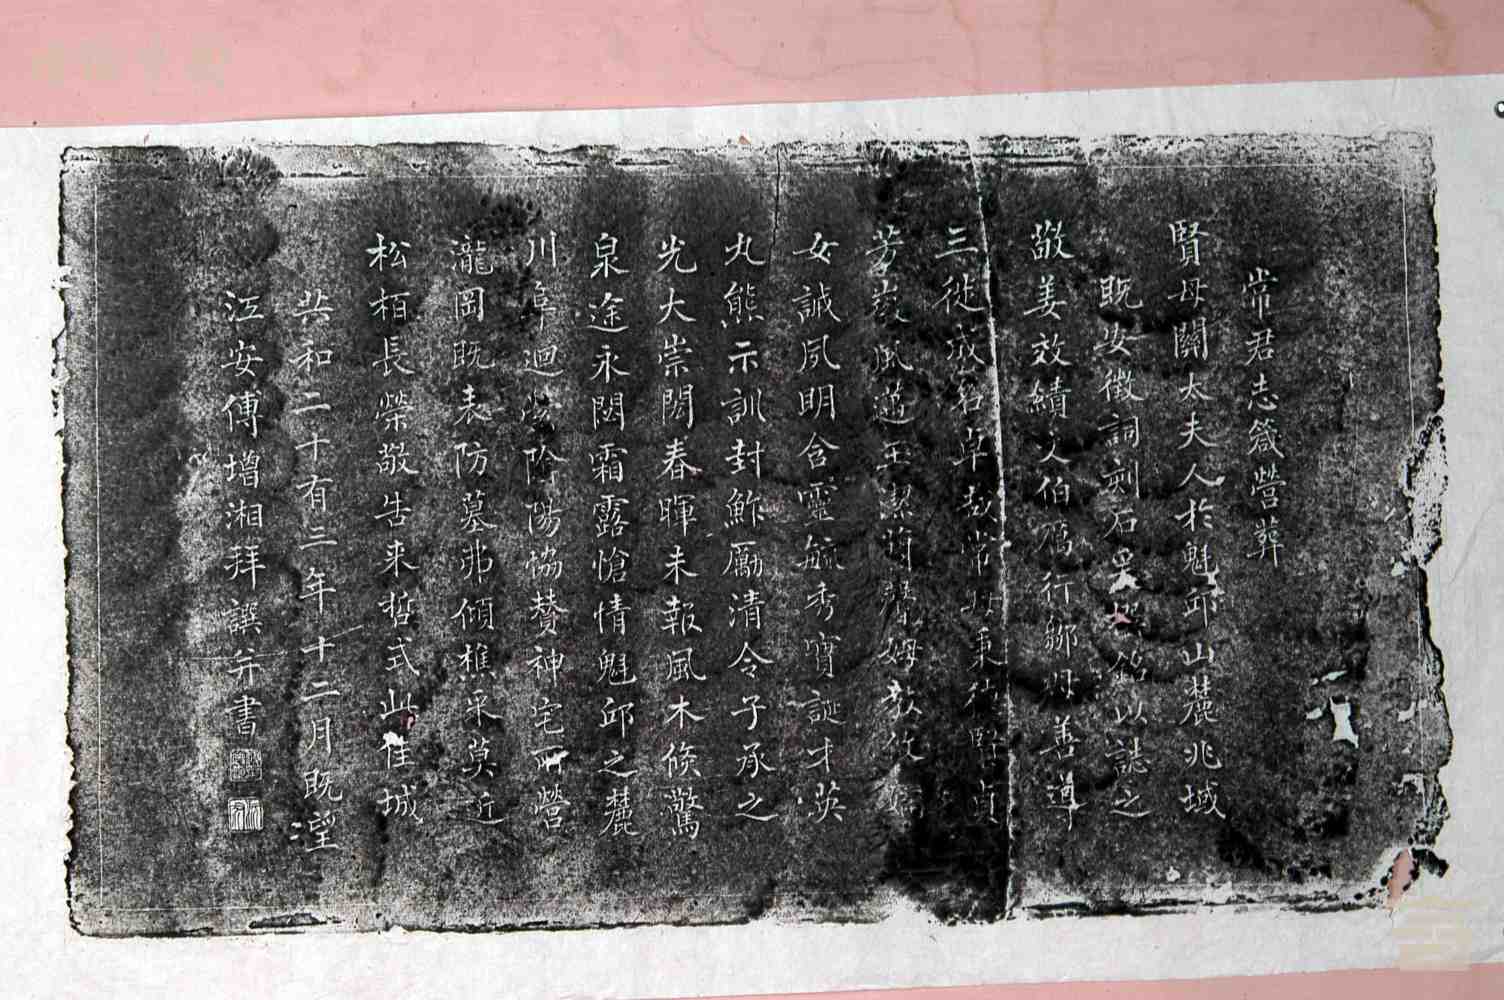 常君志箴營葬
賢母關太夫人於魁邱山麓兆域
既安徵詞刻石爰銘以誌之
敬姜效績文伯厲行鄒母善導
三徙成名卓哉常母秉德堅貞
芳嶽風邁玉潔蘭馨姆教攸嫻
女誡夙明含靈毓秀寔誕才英
丸熊示訓封鮓厲清令子承之
光大崇閎春暉未報風木倏驚
泉途永閟霜露愴情魁邱之麓
川阜迴縈陰陽協贊神宅所營
瀧岡既表防墓弗傾樵采莫近
松栢長榮敬告来哲式此佳城
共和二十有三年十二月既望
江安傅增湘拜譔并書